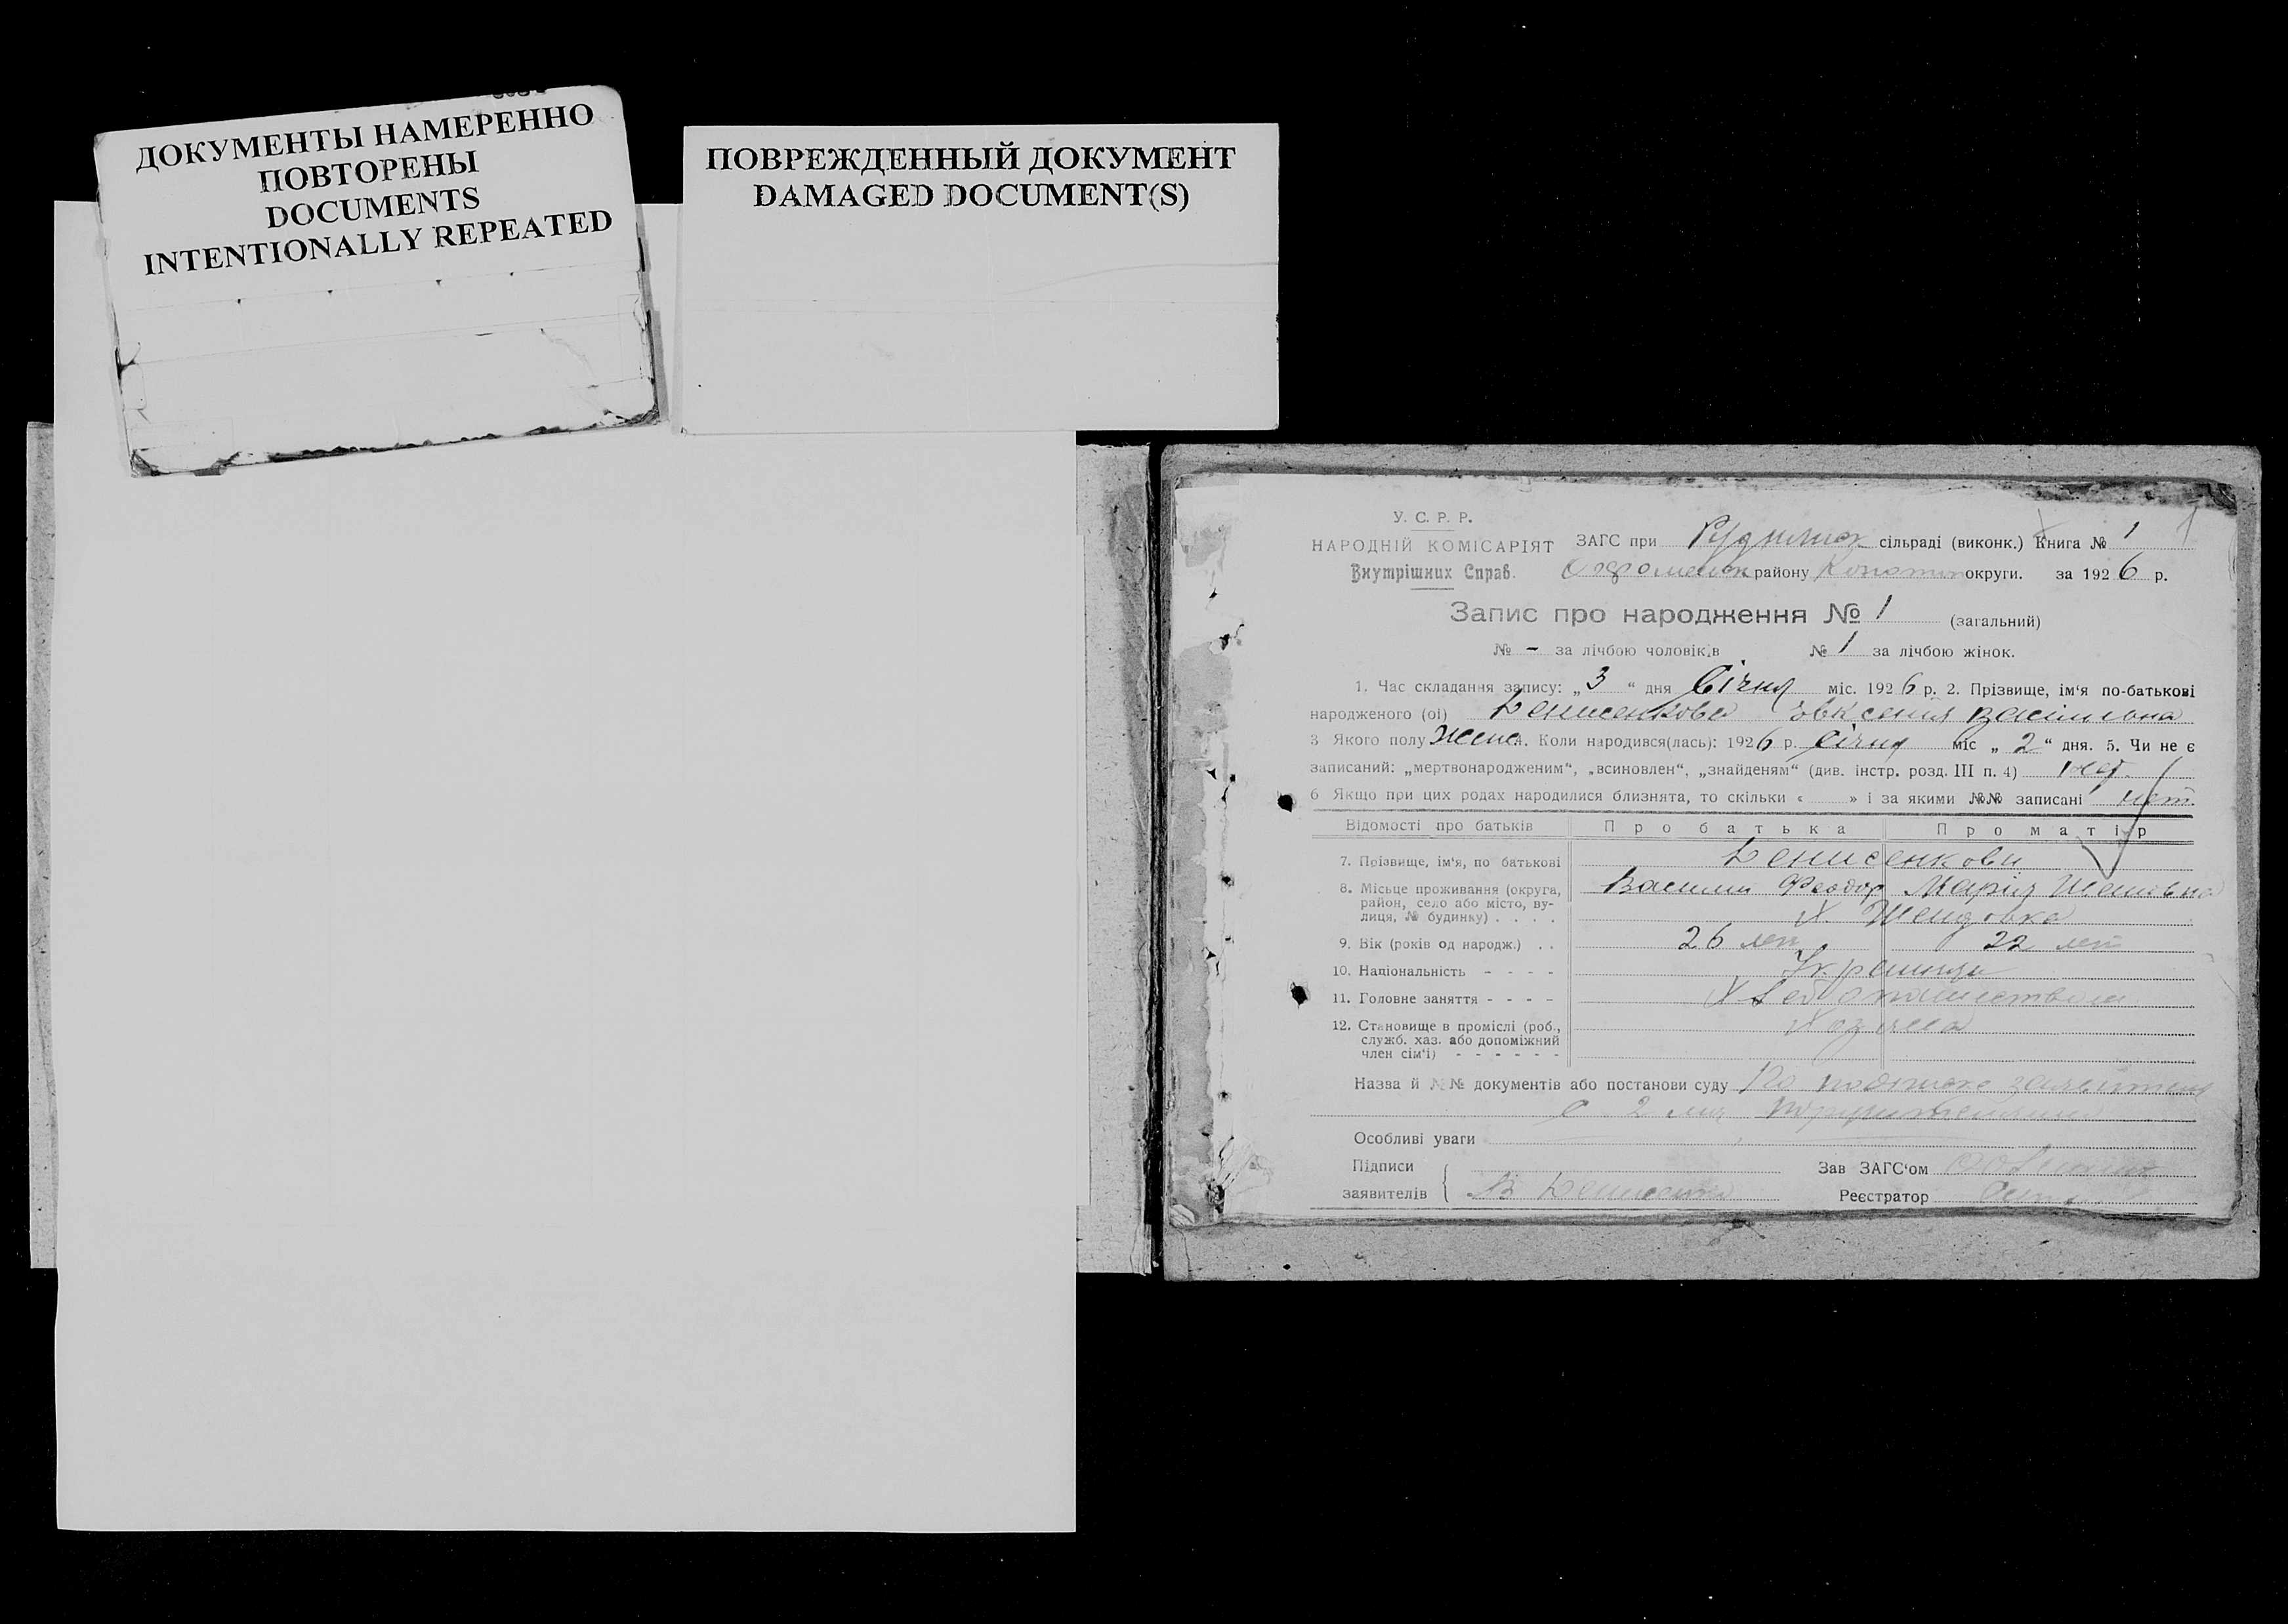 ДОКУМЕНТЫ НАМЕРЕННО
ПОВТОРЕНЫ
DOCUMENTS
INTENTIONALLY REPEATED
ПОВРЕЖДЕННЫЙ ДОКУМЕНТ
DAMAGED DOCUMENT(S)
У. С. Р. Р.
НАРОДНІЙ КОМІСАРІЯТ
Внутрішних Справ.
ЗАГС при сільраді (виконк.) Книга № 1 1
району Конотоп округи. за 1926 р.
Запис про народження № 1 (загальний)
№ - за лічбою чоловіків № 1 за лічбою жінок.
1. Час складання запису: „3“ дня Січня міс. 1926 р. 2. Прізвище, ім'я по-батькові
народженого (ої) Денисенкова
3 Якого полу 4. Коли народився(лась): 1926 р. Січня міс „2“ дня. 5. Чи не є
записаний: „мертвонародженим“, „всиновлен“, „знайденям“ (див. інстр. розд. III п. 4) нет.
6 Якщо при цих родах народилися близнята, то скільки « » і за якими №№ записані нет.
Відомості про батьків Про батька Про матір
7. Прізвище, ім'я, по батькові Денисенкови
8. Місьце проживання (округа, район, село або місто, вулиця, № будинку) . . . . Василий Феодор Мария
Х.
9. Вік (років од народж.) . . 26 лет 22 лет
10. Національність - - - - Украинцы
11. Головне заняття - - - - Хлебопашеством
12. Становище в проміслі (роб., служб. хаз. або допоміжний член сім'ї) - - - - - - Хозяева
Назва й №№ документів або постанови суду По
с 2 лиц
Особливі уваги
Підписи
заявителів В Денисенко
Зав ЗАГС'ом
Реєстратор